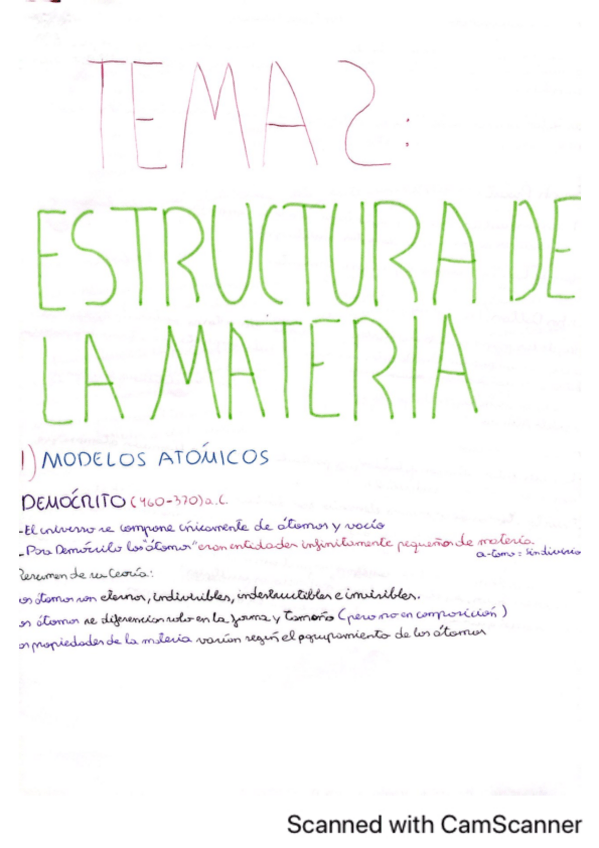 TEMA 2:
ESTRUCTURA DE
LA MATERIA
1) MODELOS ATÓMICOS
DEMÓCRITO (460-370) a.C.
-El universo se compone únicamente de átomos y vacío
-Para Demócrito los "átomos" eran entidades infinitamente pequeñas de materia.
a-tomo: sin división
Resumen de su teoría:
os átomos son eternos, indivisibles, indestructibles e invisibles.
os átomos se diferencian solo en la forma y tamaño (pero no en composición)
as propiedades de la materia varían según el agrupamiento de los átomos
Scanned with CamScanner